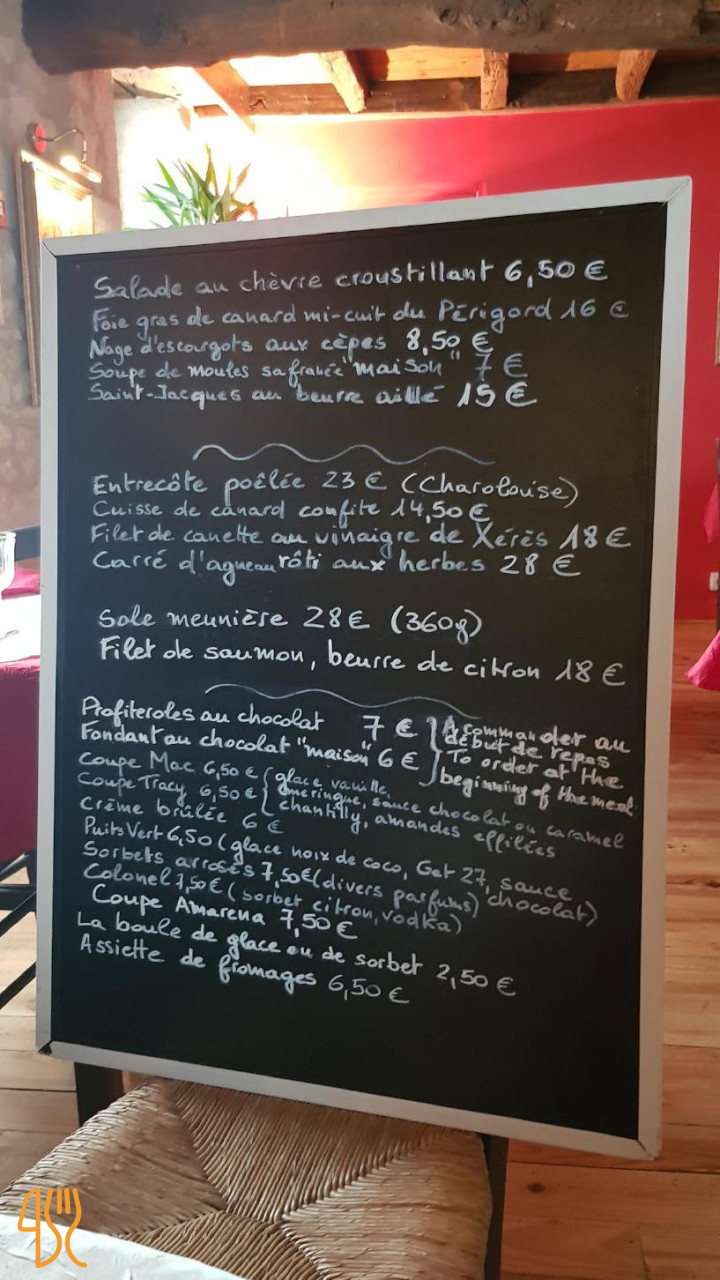 Salade au chèvre croustillant 6,50 €
Foie gras de canard mi-cuit du Périgord 16 €
Nage d'escargots aux cèpes 8,50 €
Soupe de moules safranée "maison" 7 €
Saint-Jacques au beurre aillé 15 €
Entrecôte poêlée 23 € (Charolouise)
Cuisse de canard confite 14,50 €
Filet de canette au vinaigre de Xérès 18 €
Carré d'agneau rôti aux herbes 28 €
Sole meunière 28 € (360g)
Filet de saumon, beurre de citron 18 €
Profiteroles au chocolat 7 € } A commander au
début de repas
Fondant au chocolat "maison" 6 € } To order at the
beginning of the meal
Coupe Mac 6,50 € { glace vanille,
Coupe Tracy 6,50 € { meringue, sauce chocolat ou caramel
chantilly, amandes effilées
Crème brûlée 6 €
Puits Vert 6,50 (glace noix de coco, Get 27, sauce
chocolat)
Sorbets arrosés 7,50 € (divers parfums)
Colonel 7,50 € (sorbet citron, vodka)
Coupe Amarena 7,50 €
La boule de glace ou de sorbet 2,50 €
Assiette de fromages 6,50 €